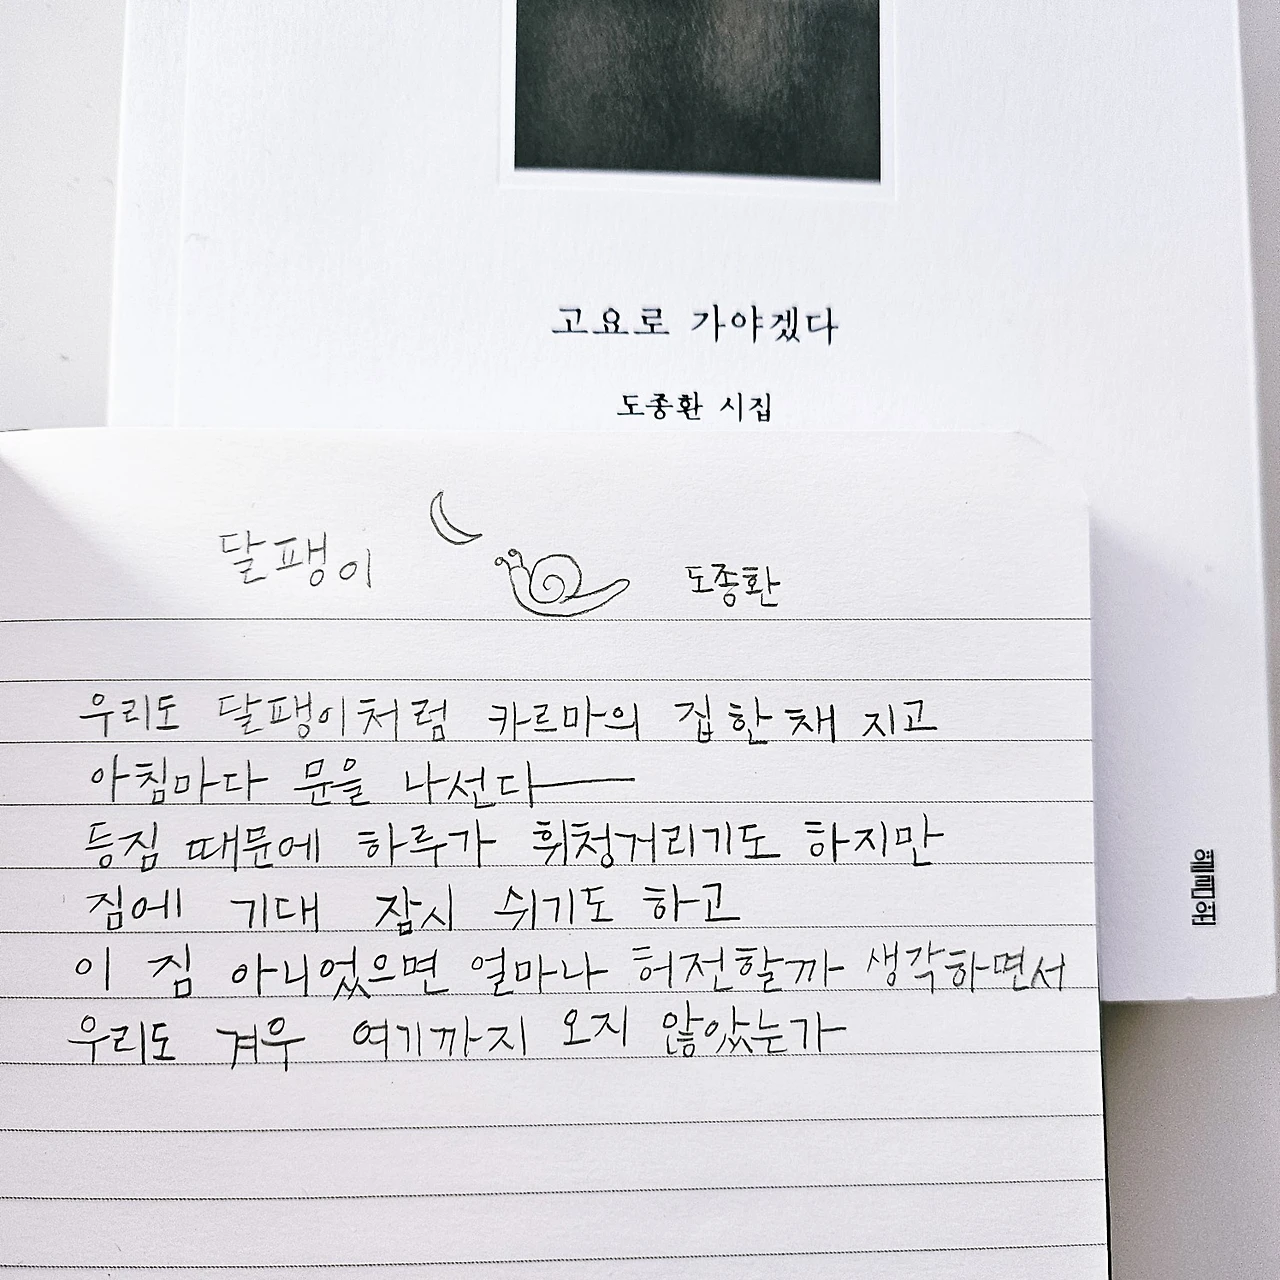 고요로 가야겠다
도종환 시집
달팽이
도종환
우리도 달팽이처럼 카르마의 집 한 채 지고
아침마다 문을 나선다
등짐 때문에 하루가 휘청거리기도 하지만
짐에 기대 잠시 쉬기도 하고
이 짐 아니었으면 얼마나 허전할까 생각하면서
우리도 겨우 여기까지 오지 않았는가
열림원